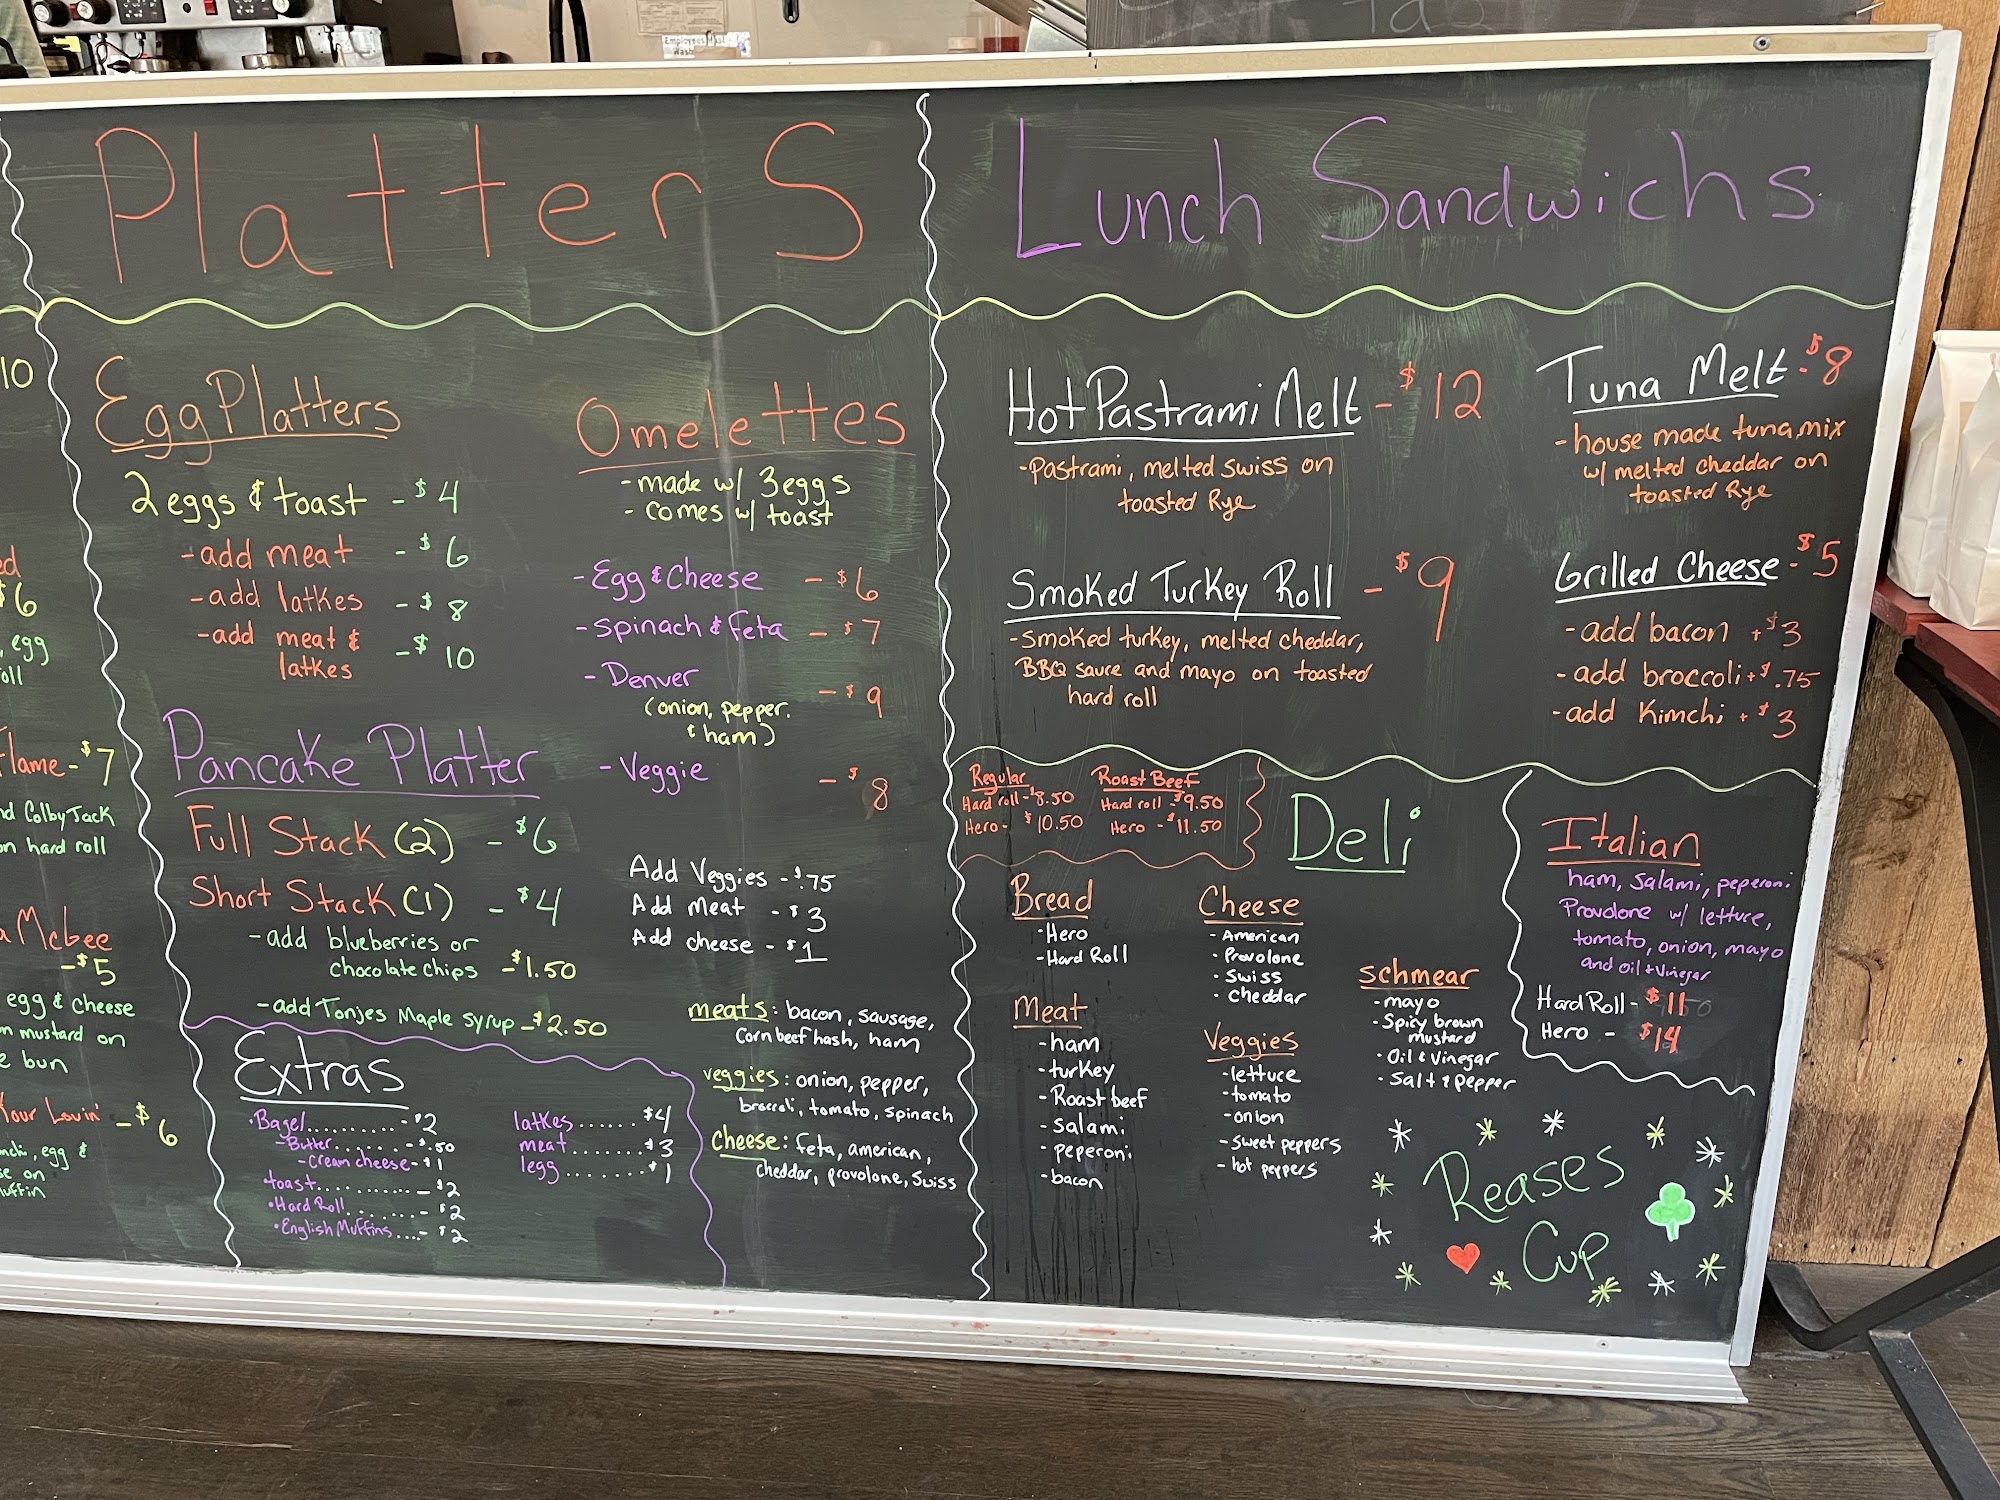 Employees Must
Wash
Platters
Lunch Sandwichs
10
ed
$6
, egg
oll
Flame - $7
nd Colby Jack
on hard roll
a Mcbee
- $5
egg & cheese
n mustard on
e bun
Your Lovin' - $6
mchi, egg &
se on
uffin
Egg Platters
2 eggs & toast - $4
- add meat - $6
- add latkes - $8
- add meat &
latkes - $10
Pancake Platter
Full Stack (2) - $6
Short Stack (1) - $4
- add blueberries or
chocolate chips - $1.50
- add Tonjes Maple syrup - $2.50
Extras
• Bagel.......... - $2
- Butter....... - $.50
- Cream cheese - $1
• toast........... - $2
• Hard Roll........ - $2
• English Muffins.... - $2
latkes...... $4
meat........ $3
1 egg........ $1
Omelettes
- made w/ 3 eggs
- comes w/ toast
- Egg & Cheese - $6
- Spinach & feta - $7
- Denver - $9
(onion, pepper.
& ham)
- Veggie - $8
Add Veggies - $.75
Add meat - $3
Add cheese - $1
meats: bacon, sausage,
Corn beef hash, ham
veggies: onion, pepper,
broccoli, tomato, spinach
cheese: feta, american,
cheddar, provolone, Swiss
Hot Pastrami Melt - $12
- Pastrami, melted swiss on
toasted Rye
Smoked Turkey Roll - $9
- Smoked turkey, melted cheddar,
BBQ sauce and mayo on toasted
hard roll
Tuna Melt - $8
- house made tuna mix
w/ melted cheddar on
toasted Rye
Grilled Cheese - $5
- add bacon + $3
- add broccoli + $.75
- add Kimchi + $3
Regular
Hard roll - $8.50
Hero - $10.50
Roast Beef
Hard roll - $9.50
Hero - $11.50
Deli
Bread
• Hero
• Hard Roll
Meat
- ham
- turkey
- Roast beef
- salami
- peperoni
- bacon
Cheese
- American
- Provolone
- Swiss
- Cheddar
Veggies
- lettuce
- tomato
- onion
- sweet peppers
- hot peppers
Schmear
- mayo
- Spicy brown
mustard
- Oil & Vinegar
- Salt & pepper
Italian
ham, salami, peperoni
Provolone w/ lettuce,
tomato, onion, mayo
and oil + vinegar
Hard Roll - $11
Hero - $14
Reases
Cup